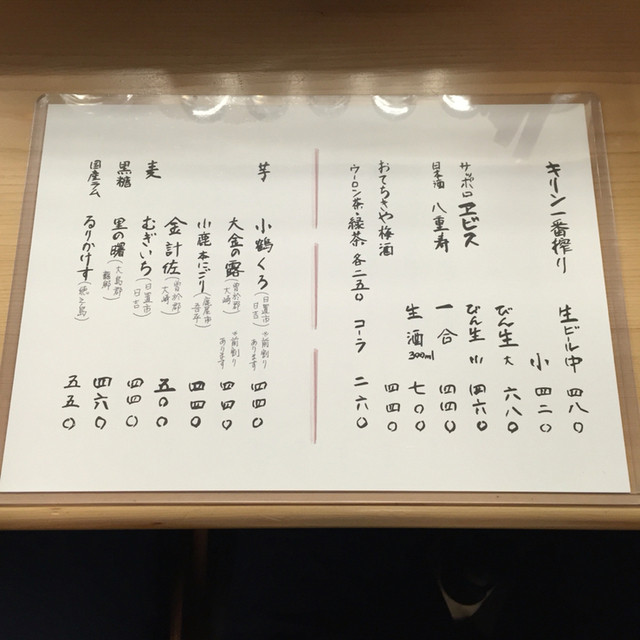 キリン一番搾り 生ビール中 四八〇
小 四二〇
びん生 大 六八〇
サッポロ ヱビス びん生 小 四六〇
日本酒 八重寿 一合 四四〇
生酒 300ml 七〇〇
おてらさや梅酒 四四〇
ウーロン茶・緑茶 各二五〇 コーラ 二六〇
芋 小鶴くろ (日置市日吉) ※前割りあります 四四〇
大金の露 (曽於郡大崎) ※前割りあります 四四〇
小鹿本にごり (鹿屋市吾平) 四四〇
金計佐 (曽於郡大崎) 五〇〇
麦 むぎいち (日置市日吉) 四四〇
黒糖 里の曙 (大島郡龍郷) 四六〇
国産ラム るりかけす (徳之島) 五五〇